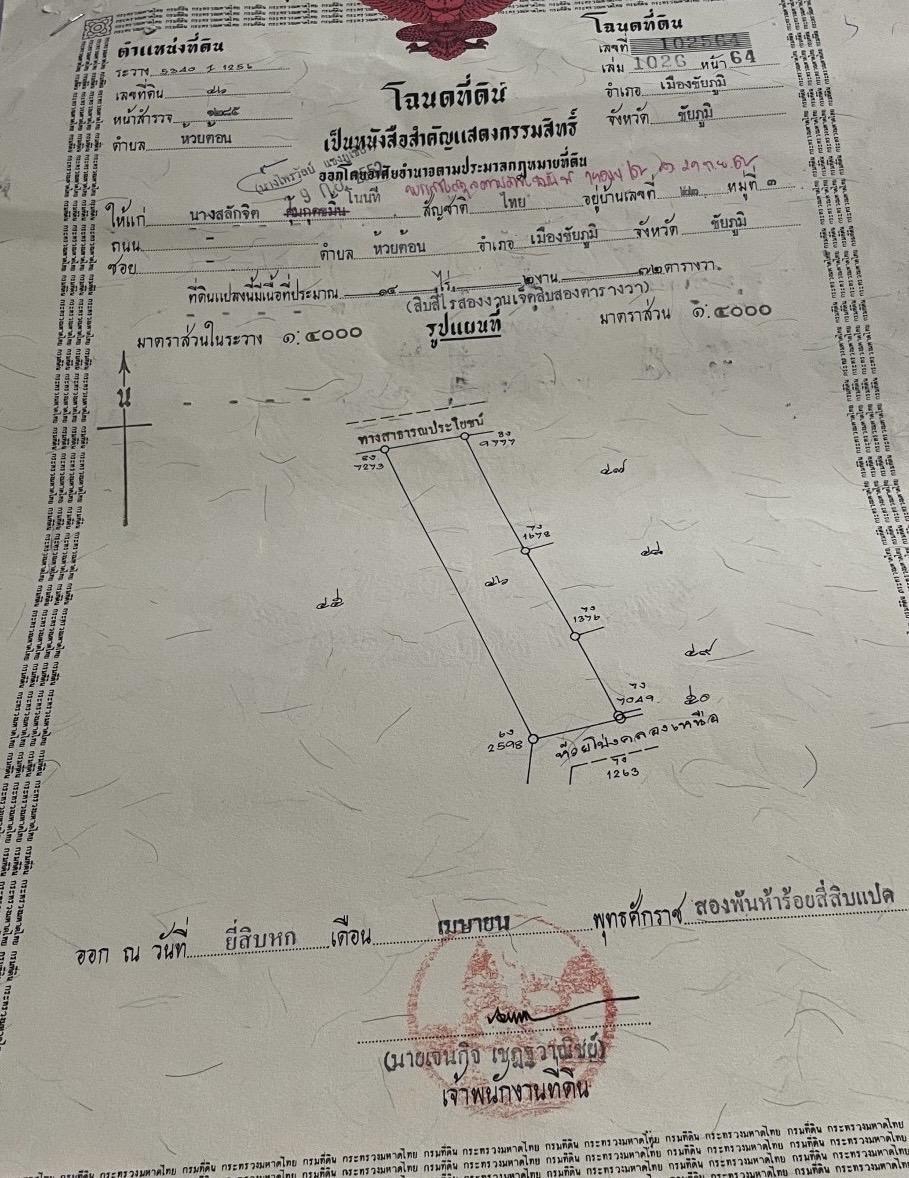 ตำแหน่งที่ดิน
ระวาง 5340 I 1256
เลขที่ดิน ๔๖
หน้าสำรวจ ๑๒๘๕
ตำบล ห้วยต้อน
โฉนดที่ดิน
เลขที่ 102564
เล่ม 1026 หน้า 64
อำเภอ เมืองชัยภูมิ
จังหวัด ชัยภูมิ
โฉนดที่ดิน
เป็นหนังสือสำคัญแสดงกรรมสิทธิ์
ออกโดยอาศัยอำนาจตามประมวลกฎหมายที่ดิน
ให้แก่ นางสลักจิต สัญชาติ ไทย อยู่บ้านเลขที่ หมู่ที่ ๓
ถนน - ตำบล ห้วยต้อน อำเภอ เมืองชัยภูมิ จังหวัด ชัยภูมิ
ซอย -
ที่ดินแปลงนี้มีเนื้อที่ประมาณ ๑๔ ไร่ ๒ งาน ๗๒ ตารางวา
(สิบสี่ไร่สองงานเจ็ดสิบสองตารางวา)
มาตราส่วนในระวาง ๑:๔๐๐๐ รูปแผนที่ มาตราส่วน ๑:๔๐๐๐
น
ทางสาธารณประโยชน์
7273
9777
๔๗
1678
๔๘
๔๖
๔๕
1376
๔๙
7049
๕๐
2598
ห้วยโป่งคลองเหนือ
1263
ออก ณ วันที่ ยี่สิบหก เดือน เมษายน พุทธศักราช สองพันห้าร้อยสี่สิบแปด
(นายเจนกิจ เชฏฐวาณิชย์)
เจ้าพนักงานที่ดิน
กรมที่ดิน กระทรวงมหาดไทย กรมที่ดิน กระทรวงมหาดไทย กรมที่ดิน กระทรวงมหาดไทย